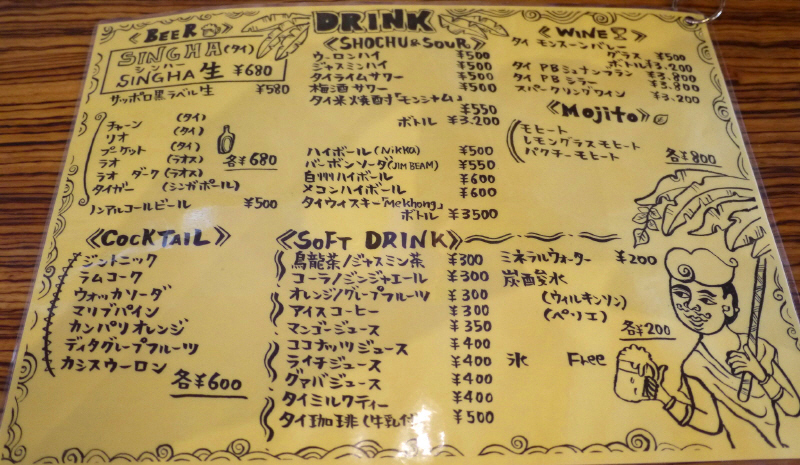 DRINK
《BEER》
SINGHA(タイ)
シンハー
SINGHA 生 ¥680
サッポロ黒ラベル生 ¥580
チャーン (タイ)
リオ (タイ)
プーケット (タイ)
ラオ (ラオス)
ラオ ダーク(ラオス)
タイガー (シンガポール)
各¥680
ノンアルコールビール ¥500
《SHOCHU & SOUR》
ウーロンハイ ¥500
ジャスミンハイ ¥500
タイライムサワー ¥500
梅酒サワー ¥500
タイ米焼酎「モンシャム」
¥550
ボトル ¥3.200
ハイボール(Nikka) ¥500
バーボンソーダ(JIM BEAM) ¥550
白州ハイボール ¥600
メコンハイボール ¥600
タイウィスキー「Mekhong」
ボトル ¥3500
《WINE》
タイ モンスーンバレー
グラス ¥500
ボトル ¥3.200
タイ PB シュナンブラン ¥3.800
タイ PB シラー ¥3.800
スパークリングワイン ¥3.200
《Mojito》
モヒート
レモングラスモヒート
パクチーモヒート
各¥800
《COCKTAIL》
ジントニック
ラムコーク
ウォッカソーダ
マリブパイン
カンパリオレンジ
ディタグレープフルーツ
カシスウーロン
各¥600
《SOFT DRINK》
烏龍茶/ジャスミン茶 ¥300
コーラ/ジンジャエール ¥300
オレンジ/グレープフルーツ ¥300
アイスコーヒー ¥300
マンゴージュース ¥350
ココナッツジュース ¥400
ライチジュース ¥400
グァバジュース ¥400
タイミルクティー ¥400
タイ珈琲(牛乳付) ¥500
ミネラルウォーター ¥200
炭酸水
(ウィルキンソン)
(ペリエ)
各¥200
氷 Free